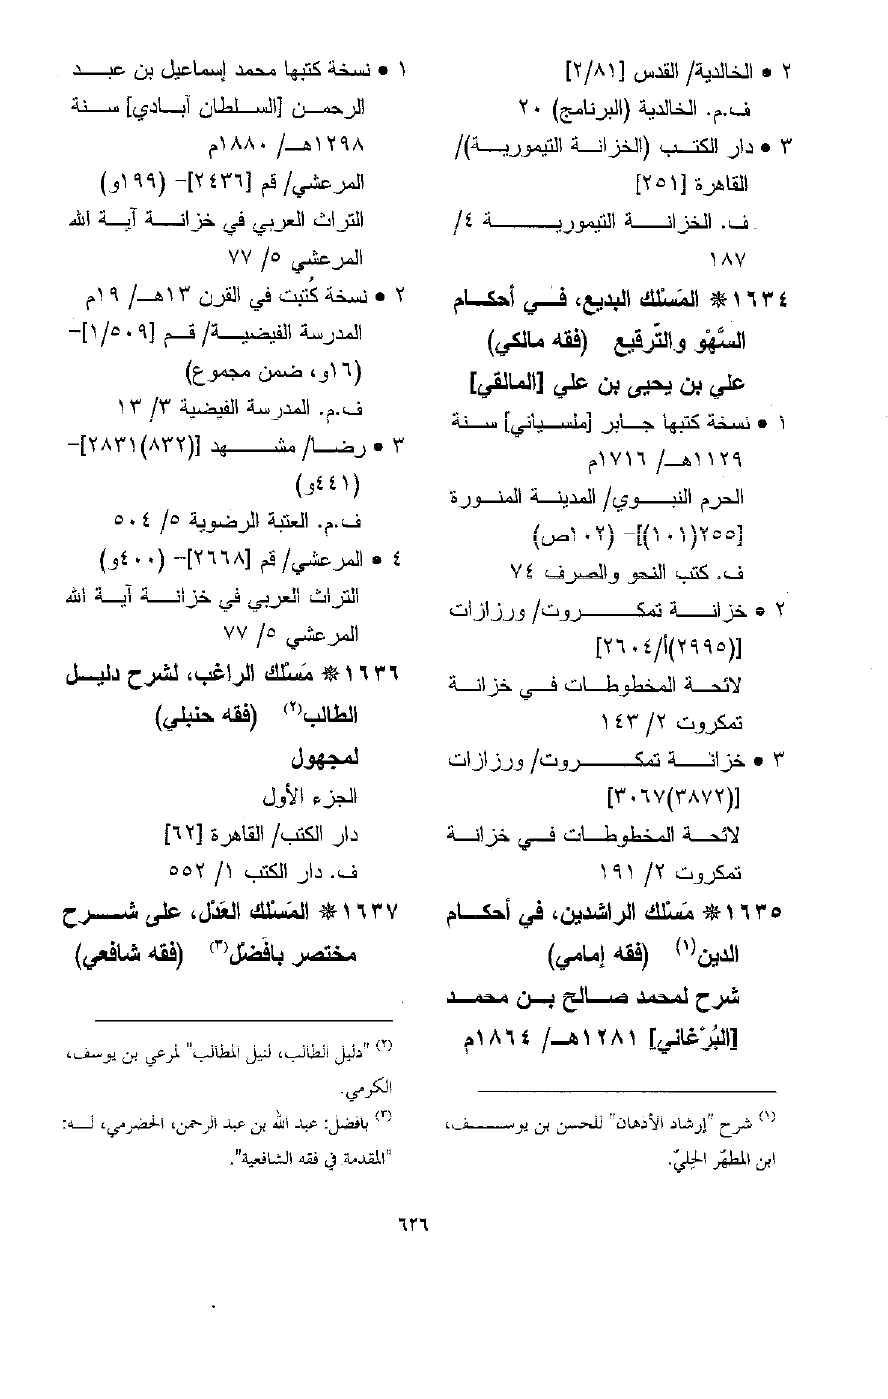 ٢ • الخالدية/ القدس [٢/٨١]
ف.م. الخالدية (البرنامج) ٢٠
٣ • دار الكتب (الخزانة التيمورية)/
القاهرة [٢٥١]
ف. الخزانة التيمورية ٤/
١٨٧
١٦٣٤* المَسْلك البديع، في أحكام
السَّهْو والتَّرقيع (فقه مالكي)
علي بن يحيى بن علي [المالقي]
١ • نسخة كتبها جابر [ملسياني] سنة
١١٢٩هـ/ ١٧١٦م
الحرم النبوي/ المدينة المنورة
[٢٥٥(١٠١)]- (١٠٢ص)
ف. كتب النحو والصرف ٧٤
٢ • خزانة تمكروت/ ورزازات
[(٢٩٩٥)أ/٢٦٠٤]
لائحة المخطوطات في خزانة
تمكروت ٢/ ١٤٣
٣ • خزانة تمكروت/ ورزازات
[(٣٨٧٢)٣٠٦٧]
لائحة المخطوطات في خزانة
تمكروت ٢/ ١٩١
١٦٣٥* مَسْلك الراشدين، في أحكام
الدين(١) (فقه إمامي)
شرح لمحمد صالح بن محمد
[البُرْغاني] ١٢٨١هـ/ ١٨٦٤م
(١) شرح "إرشاد الأذهان" للحسن بن يوسف،
ابن المطهّر الحِليّ.
١ • نسخة كتبها محمد إسماعيل بن عبد
الرحمن [السلطان آبادي] سنة
١٢٩٨هـ/ ١٨٨٠م
المرعشي/ قم [٢٤٣٦]- (١٩٩و)
التراث العربي في خزانة آية الله
المرعشي ٥/ ٧٧
٢ • نسخة كُتبت في القرن ١٣هـ/ ١٩م
المدرسة الفيضية/ قم [١/٥٠٩]-
(١٦و، ضمن مجموع)
ف.م. المدرسة الفيضية ٣/ ١٣
٣ • رضا/ مشهد [(٨٣٢)٢٨٣١]-
(٤٤١و)
ف.م. العتبة الرضوية ٥/ ٥٠٤
٤ • المرعشي/ قم [٢٦٦٨]- (٤٠٠و)
التراث العربي في خزانة آية الله
المرعشي ٥/ ٧٧
١٦٣٦* مَسْلك الراغب، لشرح دليل
الطالب(٢) (فقه حنبلي)
لمجهول
الجزء الأول
دار الكتب/ القاهرة [٦٢]
ف. دار الكتب ١/ ٥٥٢
١٦٣٧* المَسْلك العَدْل، على شرح
مختصر بافَضْل(٣) (فقه شافعي)
(٢) "دليل الطالب، لنيل المطالب" لمرعي بن يوسف،
الكرمي.
(٣) بافضل: عبد الله بن عبد الرحمن، الحضرمي، له:
"المقدمة في فقه الشافعية".
٦٢٦